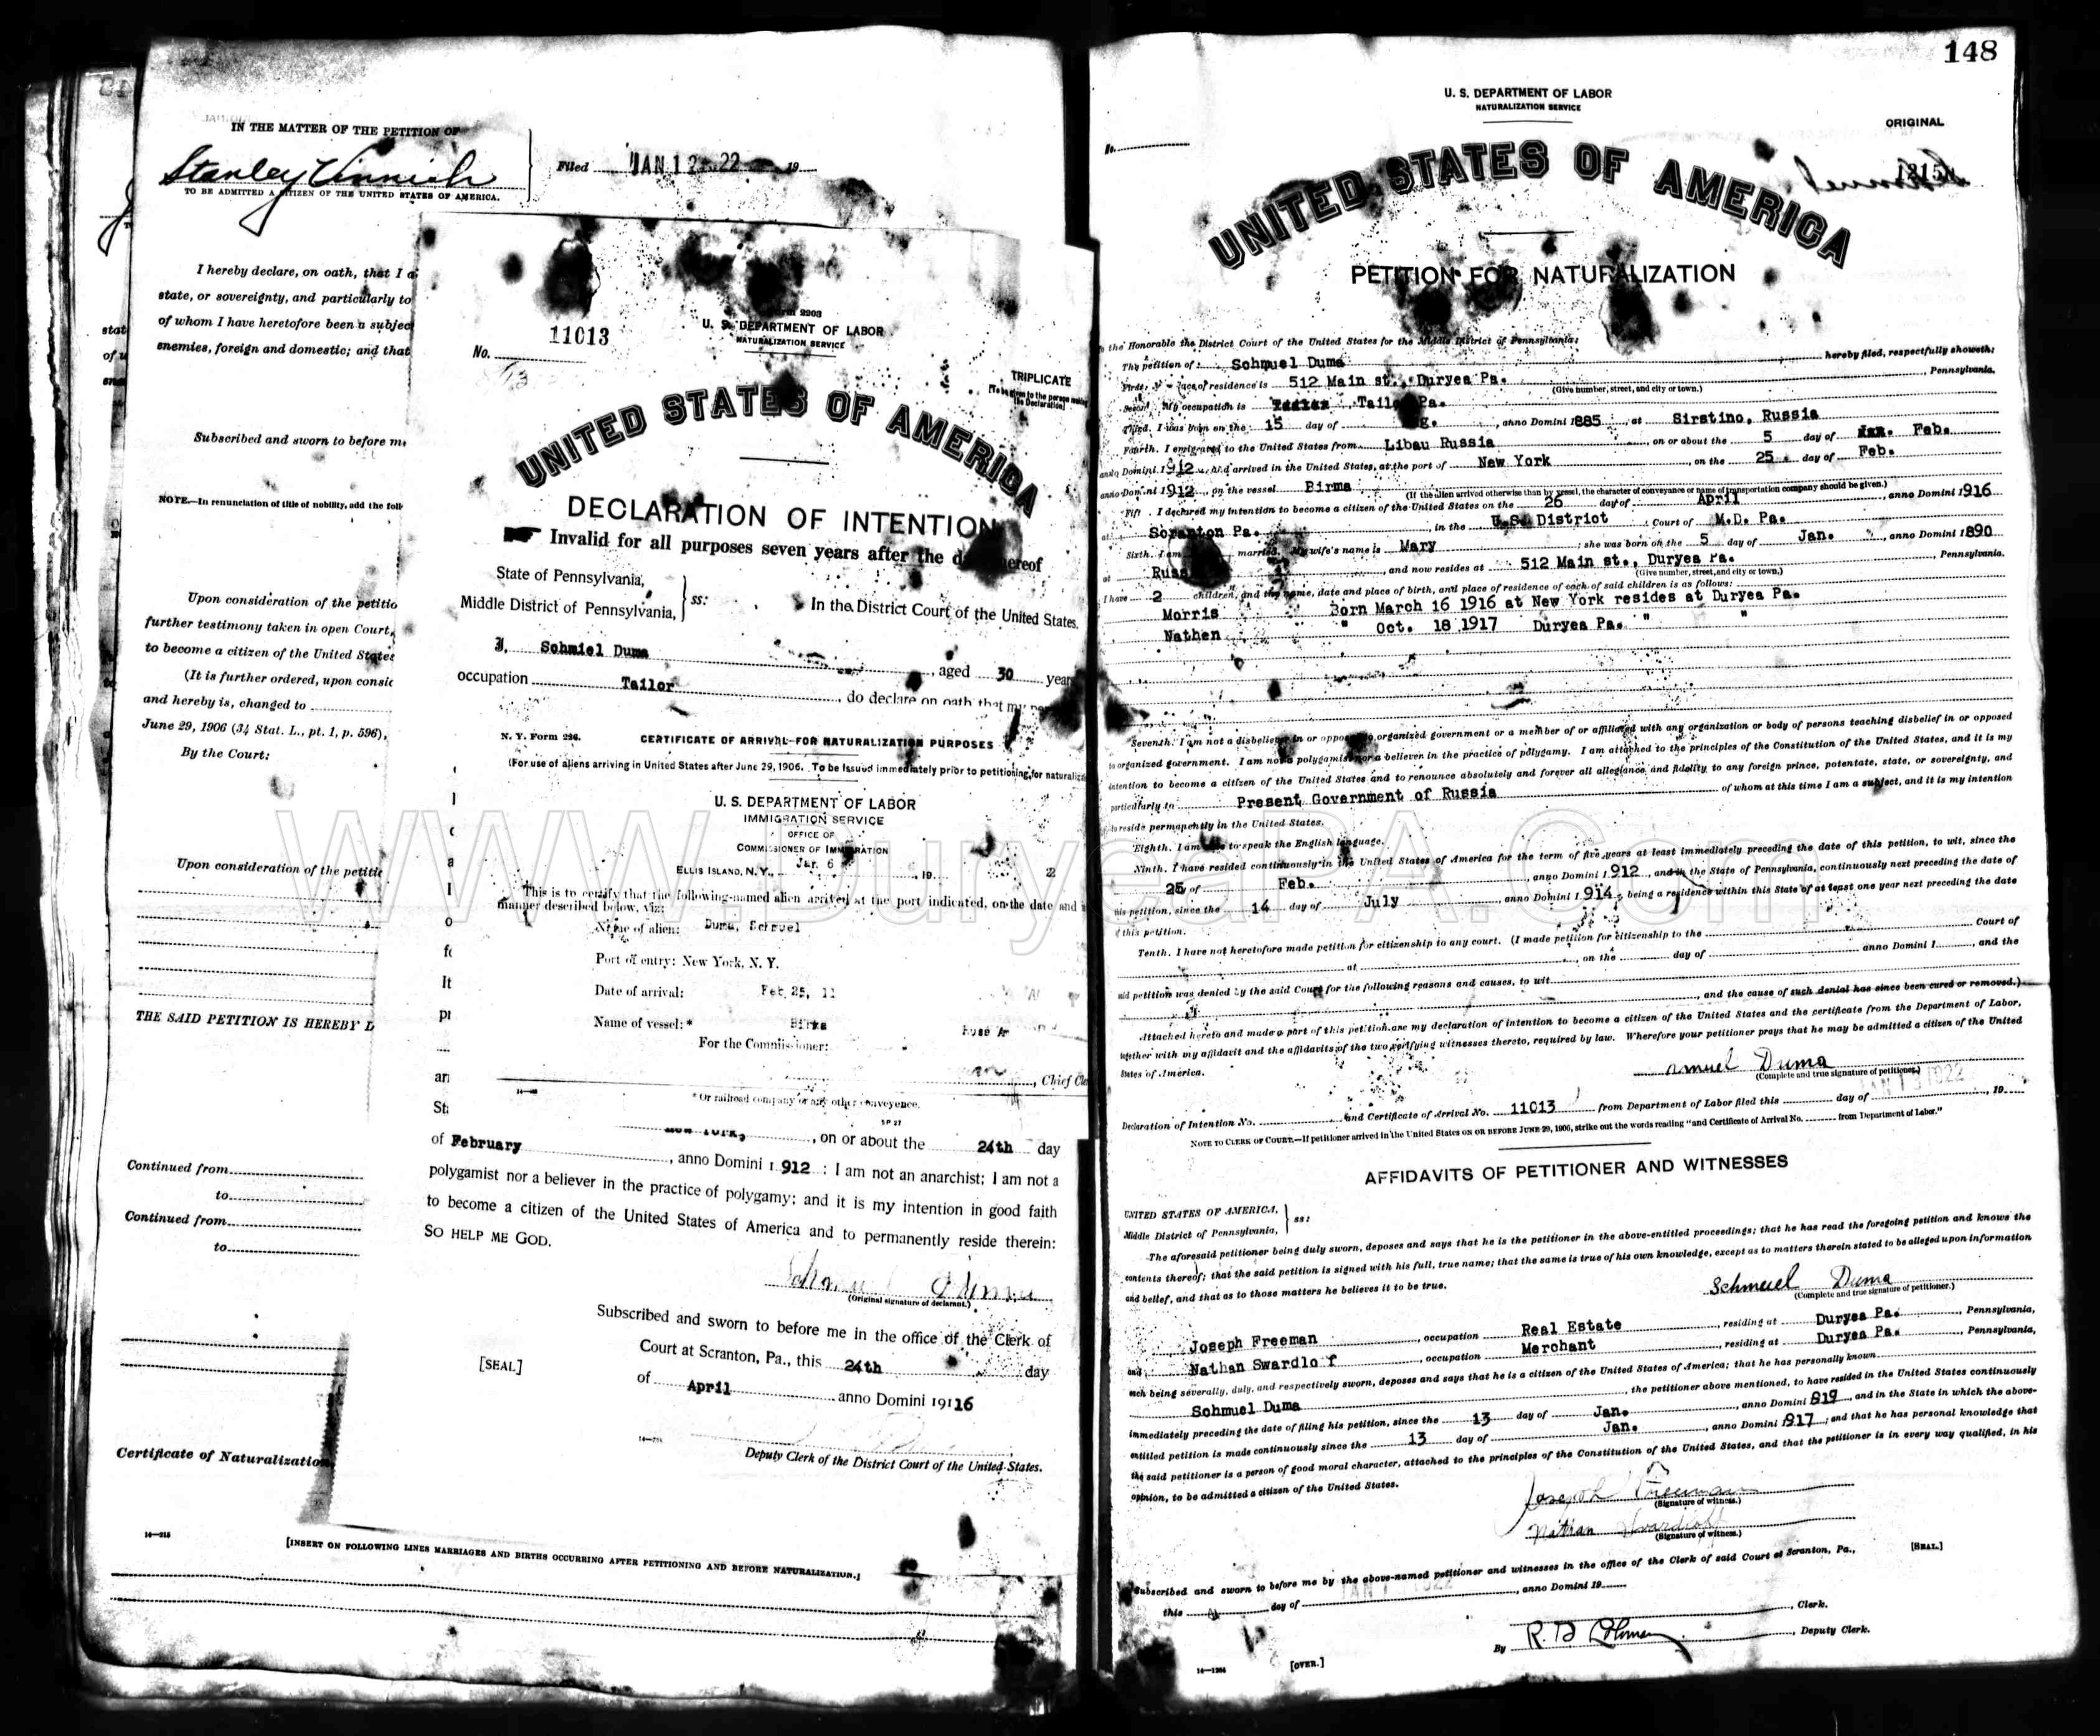 IN THE MATTER OF THE PETITION OF
Stanley
TO BE ADMITTED A CITIZEN OF THE UNITED STATES OF AMERICA.
Filed JAN 12 22 19
I hereby declare, on oath, that I a
state, or sovereignty, and particularly to
of whom I have heretofore been a subjec
enemies, foreign and domestic; and that
Subscribed and sworn to before me
NOTE.—In renunciation of title of nobility, add the foll
Upon consideration of the petitio
further testimony taken in open Court,
to become a citizen of the United States
(It is further ordered, upon consid
and hereby is, changed to
June 29, 1906 (34 Stat. L., pt. 1, p. 596),
By the Court:
Upon consideration of the petitio
THE SAID PETITION IS HEREBY D
Continued from
to
Continued from
to
Certificate of Naturalization
14—218
[INSERT ON FOLLOWING LINES MARRIAGES AND BIRTHS OCCURRING AFTER PETITIONING AND BEFORE NATURALIZATION.]
2203
No. 11013
U. S. DEPARTMENT OF LABOR
NATURALIZATION SERVICE
TRIPLICATE
[To be given to the person making the Declaration]
UNITED STATES OF AMERICA
DECLARATION OF INTENTION
Invalid for all purposes seven years after the date hereof
State of Pennsylvania,
Middle District of Pennsylvania, ss: In the District Court of the United States.
I, Schmiel Duma, aged 30 years
occupation Tailor, do declare on oath that my
N. Y. Form 286.
CERTIFICATE OF ARRIVAL—FOR NATURALIZATION PURPOSES
(For use of aliens arriving in United States after June 29, 1906. To be issued immediately prior to petitioning for naturaliz
U. S. DEPARTMENT OF LABOR
IMMIGRATION SERVICE
OFFICE OF
COMMISSIONER OF IMMIGRATION
ELLIS ISLAND, N. Y., Jan. 6, 19 2
This is to certify that the following-named alien arrived at the port indicated, on the date and in
manner described below, viz:
Name of alien: Duma, Schmuel
Port of entry: New York, N. Y.
Date of arrival: Feb. 25, 11
Name of vessel:* Birma
For the Commissioner:
, Chief Cle
*Or railroad company or any other conveyence.
New York, on or about the 24th day
of February, anno Domini 1912 : I am not an anarchist; I am not a
polygamist nor a believer in the practice of polygamy; and it is my intention in good faith
to become a citizen of the United States of America and to permanently reside therein:
SO HELP ME GOD.
Schmuel Duma
(Original signature of declarant.)
Subscribed and sworn to before me in the office of the Clerk of
[SEAL] Court at Scranton, Pa., this 24th day
of April anno Domini 19116
Deputy Clerk of the District Court of the United States.
148
U. S. DEPARTMENT OF LABOR
NATURALIZATION SERVICE
ORIGINAL
No.
UNITED STATES OF AMERICA
PETITION FOR NATURALIZATION
to the Honorable the District Court of the United States for the Middle District of Pennsylvania:
The petition of Schmuel Duma hereby filed, respectfully showeth:
First. My place of residence is 512 Main st., Duryea Pa., Pennsylvania.
(Give number, street, and city or town.)
Second. My occupation is Tailor Pa.
Third. I was born on the 15 day of ug., anno Domini 1885, at Sirstino, Russia
Fourth. I emigrated to the United States from Libau Russia, on or about the 5 day of Feb.
anno Domini 1912, and arrived in the United States, at the port of New York, on the 25 day of Feb.
anno Domini 1912, on the vessel Birma
(If the alien arrived otherwise than by vessel, the character of conveyance or name of transportation company should be given.)
Fifth. I declared my intention to become a citizen of the United States on the 26 day of April, anno Domini 1916
at Scranton Pa., in the U.S. District Court of M.D. Pa.
Sixth. I am married. My wife's name is Mary; she was born on the 5 day of Jan., anno Domini 1890
at Russ, and now resides at 512 Main st., Duryea Pa., Pennsylvania.
(Give number, street, and city or town.)
I have 2 children, and the name, date and place of birth, and place of residence of each of said children is as follows:
Morris Born March 16 1916 at New York resides at Duryea Pa.
Nathen " Oct. 18 1917 Duryea Pa. " "
Seventh. I am not a disbeliever in or opposed to organized government or a member of or affiliated with any organization or body of persons teaching disbelief in or opposed
to organized government. I am not a polygamist nor a believer in the practice of polygamy. I am attached to the principles of the Constitution of the United States, and it is my
intention to become a citizen of the United States and to renounce absolutely and forever all allegiance and fidelity to any foreign prince, potentate, state, or sovereignty, and
particularly to Present Government of Russia of whom at this time I am a subject, and it is my intention
to reside permanently in the United States.
Eighth. I am able to speak the English language.
Ninth. I have resided continuously in the United States of America for the term of five years at least immediately preceding the date of this petition, to wit, since the
25 of Feb., anno Domini 1912, and in the State of Pennsylvania, continuously next preceding the date of
this petition, since the 14 day of July, anno Domini 1914, being a residence within this State of at least one year next preceding the date
of this petition.
Tenth. I have not heretofore made petition for citizenship to any court. (I made petition for citizenship to the Court of
at , on the day of anno Domini 1, and the
said petition was denied by the said Court for the following reasons and causes, to wit
, and the cause of such denial has since been cured or removed.)
Attached hereto and made a part of this petition are my declaration of intention to become a citizen of the United States and the certificate from the Department of Labor,
together with my affidavit and the affidavits of the two verifying witnesses thereto, required by law. Wherefore your petitioner prays that he may be admitted a citizen of the United
States of America.
muel Duma
(Complete and true signature of petitioner.)
Declaration of Intention No. and Certificate of Arrival No. 11013 from Department of Labor filed this day of , 19
NOTE TO CLERK OF COURT.—If petitioner arrived in the United States ON OR BEFORE JUNE 29, 1906, strike out the words reading "and Certificate of Arrival No. from Department of Labor."
AFFIDAVITS OF PETITIONER AND WITNESSES
UNITED STATES OF AMERICA,
Middle District of Pennsylvania, ss:
The aforesaid petitioner being duly sworn, deposes and says that he is the petitioner in the above-entitled proceedings; that he has read the foregoing petition and knows the
contents thereof; that the said petition is signed with his full, true name; that the same is true of his own knowledge, except as to matters therein stated to be alleged upon information
and belief, and that as to those matters he believes it to be true.
Schmuel Duma
(Complete and true signature of petitioner.)
Joseph Freeman, occupation Real Estate, residing at Duryea Pa., Pennsylvania,
and Nathan Swardlo f, occupation Merchant, residing at Duryea Pa., Pennsylvania,
each being severally, duly, and respectively sworn, deposes and says that he is a citizen of the United States of America; that he has personally known
Schmuel Duma, the petitioner above mentioned, to have resided in the United States continuously
immediately preceding the date of filing his petition, since the 13 day of Jan., anno Domini 819, and in the State in which the above-
entitled petition is made continuously since the 13 day of Jan., anno Domini 1917, and that he has personal knowledge that
the said petitioner is a person of good moral character, attached to the principles of the Constitution of the United States, and that the petitioner is in every way qualified, in his
opinion, to be admitted a citizen of the United States.
Joseph Freeman
(Signature of witness.)
Nathan Swardloff
(Signature of witness.)
Subscribed and sworn to before me by the above-named petitioner and witnesses in the office of the Clerk of said Court at Scranton, Pa., [SEAL.]
this day of , anno Domini 19
, Clerk.
By R. D. , Deputy Clerk.
14—1264
[OVER.]
WWW.DuryeaPA.Com